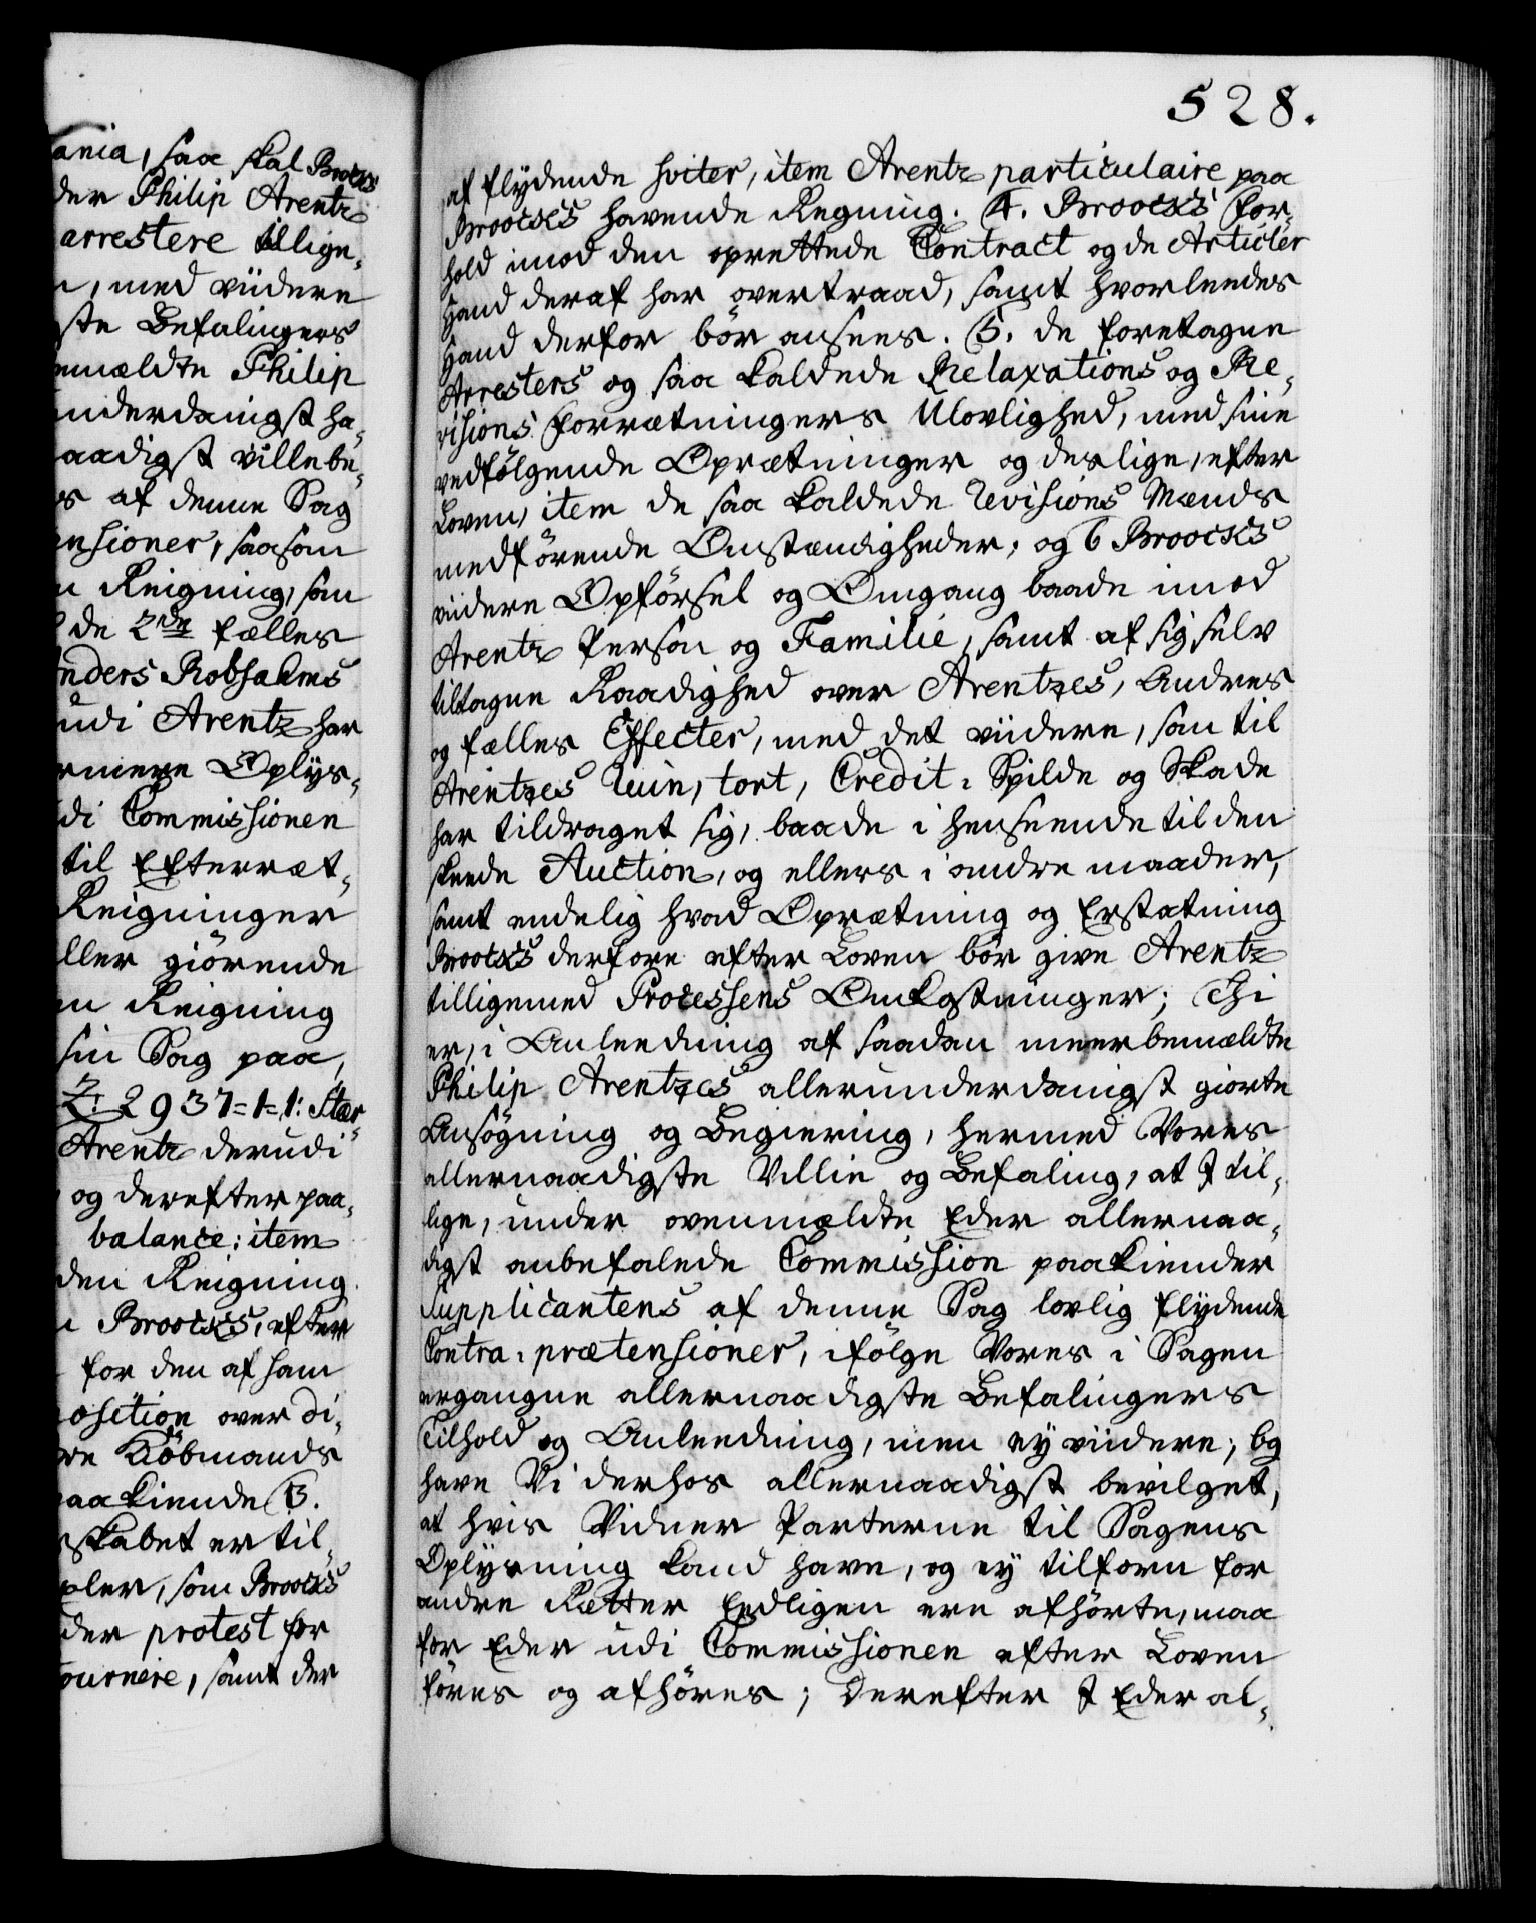 ania, saa skal Broocks
der Philip Arentz
arrestere tillige¸
, med viidere
ste Befalingers
emældte Philip
underdanigst ha¸
aadigst ville be¸
s af denne Sag
ensioner, saasom
Reigning, som
de 2de fælles
nders Robsahms
udi Arentz har
rmere Oplys¸
di Commissionen
til Efterræt¸
Reigninger
ller giörende
Reigning
sin Sag paa,
2937=1=1: Stær
Arentz derudi
og derefter paa¸
balance; item
den Reigning
Broocks, efter
for den af ham
osition over di¸
re Köbmands
aakiende (3.
skabet er til¸
pler, som Broocks
der protest for
ournere, samt der
528.
af flydende sviter, item Arentz particulaire paa
Broockses havende Regning. (4. Broockses For¸
hold imod den oprettede Contract og de Articler
Hand deraf har overtraad, samt hvorleedes
Hand derfor bör ansees. (5. de foretagne
Arresters og saa kaldede Relaxations og Re¸
visions Forrætningers Ulovlighed, med sine
vedfölgende Oprætninger og deslige, efter
Loven, item de saa kaldede Revisions Mænds
medförende Omstændigheder, og 6 Broockses
viidere Opförsel og Omgang baade imod
Arentz Person og Familie, samt af sig selv
tiltagne Raadighed over Arentzes, Andres
og fælles Effecter, med det viidere, som til
Arentzes Ruin, tort, Credit¸ Spilde og Skade
har tildraget sig, baade i henseende til den
skeede Auction, og ellers i andre maader,
samt endelig hvad Oprætning og Erstatning
Broocks derfore efter Loven bör give Arentz
tilligemed Processens Omkostninger; Thi
er, i Anleedning af saadan meerbemældte
Philip Arentzes allerunderdanigst giorte
Ansögning og Begiering, hermed Vores
allernaadigste Villie og Befaling, at I til¸
lige, under ovenmældte Eder allernaa¸
digst anbefalede Commission paakiender
Supplicantens af denne Sag lovlig flydende
Contra¸ prætensioner, ifölge Vores i Sagen
ergangne allernaadigste Befalingers
Tilhold og Anleedning, men ey viidere; Og
have Vi derhos allernaadigst bevilget,
at hvis Vidner Parterne til Sagens
Oplysning kand have, og ey tilforn for
andre Rætter Eedligen ere afhörte, maa
for Eder udi Commissionen efter Loven
föres og afhöres; Derefter I Eder al¸